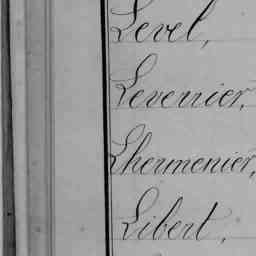 Level,
Leverrier,
Lhermenier,
Libert,